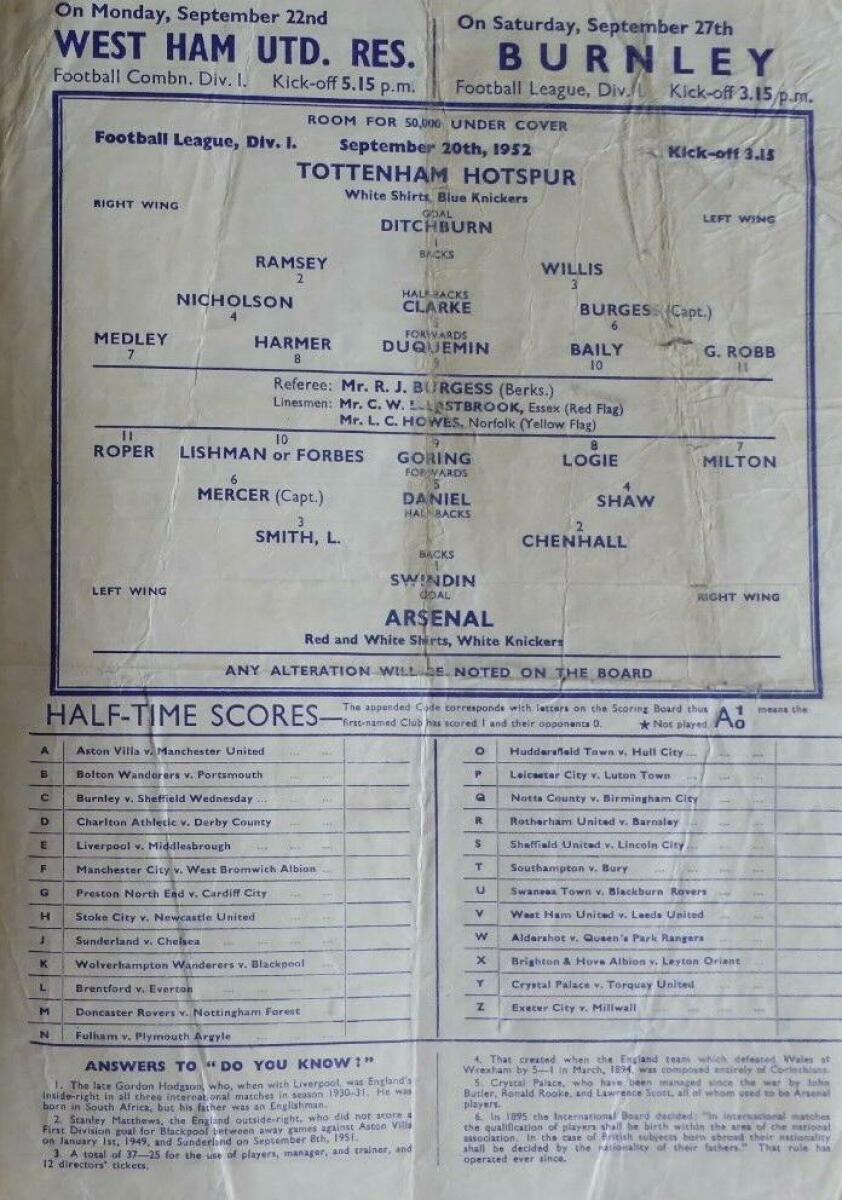 On Monday, September 22nd
WEST HAM UTD. RES.
Football Combn. Div. I. Kick-off 5.15 p.m.
On Saturday, September 27th
BURNLEY
Football League, Div. I. Kick-off 3.15 p.m.
ROOM FOR 50,000 UNDER COVER
Football League, Div. I. September 20th, 1952 Kick-off 3.15
TOTTENHAM HOTSPUR
White Shirts, Blue Knickers
RIGHT WING GOAL LEFT WING
DITCHBURN
1
BACKS
RAMSEY WILLIS
2 3
NICHOLSON HALF BACKS BURGESS (Capt.)
CLARKE
4 5 6
FORWARDS
MEDLEY HARMER DUQUEMIN BAILY G. ROBB
7 8 9 10 11
Referee: Mr. R. J. BURGESS (Berks.)
Linesmen: Mr. C. W. Essex (Red Flag)
Mr. L. C. HOWES, Norfolk (Yellow Flag)
11 10 9 8 7
ROPER LISHMAN or FORBES GORING LOGIE MILTON
FORWARDS
6 5 4
MERCER (Capt.) DANIEL SHAW
HALF BACKS
3 2
SMITH, L. CHENHALL
BACKS
1
SWINDIN
LEFT WING GOAL RIGHT WING
ARSENAL
Red and White Shirts, White Knickers
ANY ALTERATION WILL BE NOTED ON THE BOARD
HALF-TIME SCORES—The appended Code corresponds with letters on the Scoring Board thus A 1 0 means the
first-named Club has scored 1 and their opponents 0. ★ Not played
A Aston Villa v. Manchester United ... ...
B Bolton Wanderers v. Portsmouth ... ...
C Burnley v. Sheffield Wednesday ... ...
D Charlton Athletic v. Derby County ... ...
E Liverpool v. Middlesbrough ... ... ...
F Manchester City v. West Bromwich Albion ...
G Preston North End v. Cardiff City ... ...
H Stoke City v. Newcastle United ... ...
J Sunderland v. Chelsea ... ... ...
K Wolverhampton Wanderers v. Blackpool ...
L Brentford v. Everton ... ... ...
M Doncaster Rovers v. Nottingham Forest
N Fulham v. Plymouth Argyle ... ...
O Huddersfield Town v. Hull City ... ...
P Leicester City v. Luton Town ... ...
Q Notts County v. Birmingham City ... ...
R Rotherham United v. Barnsley ... ...
S Sheffield United v. Lincoln City ... ...
T Southampton v. Bury ... ... ...
U Swansea Town v. Blackburn Rovers ... ...
V West Ham United v. Leeds United ... ...
W Aldershot v. Queen's Park Rangers ... ...
X Brighton & Hove Albion v. Leyton Orient ...
Y Crystal Palace v. Torquay United ... ...
Z Exeter City v. Millwall ... ...
ANSWERS TO "DO YOU KNOW?"
1. The late Gordon Hodgson, who, when with Liverpool, was England's
inside-right in all three international matches in season 1930-31. He was
born in South Africa, but his father was an Englishman.
2. Stanley Matthews, the England outside-right, who did not score a
First Division goal for Blackpool between away games against Aston Villa
on January 1st, 1949, and Sunderland on September 8th, 1951.
3. A total of 37—25 for the use of players, manager, and trainer, and
12 directors' tickets.
4. That created when the England team which defeated Wales at
Wrexham by 5—1 in March, 1894, was composed entirely of Corinthians.
5. Crystal Palace, who have been managed since the war by John
Butler, Ronald Rooke, and Lawrence Scott, all of whom used to be Arsenal
players.
6. In 1895 the International Board decided: "In international matches
the qualification of players shall be birth within the area of the national
association. In the case of British subjects born abroad their nationality
shall be decided by the nationality of their fathers." That rule has
operated ever since.